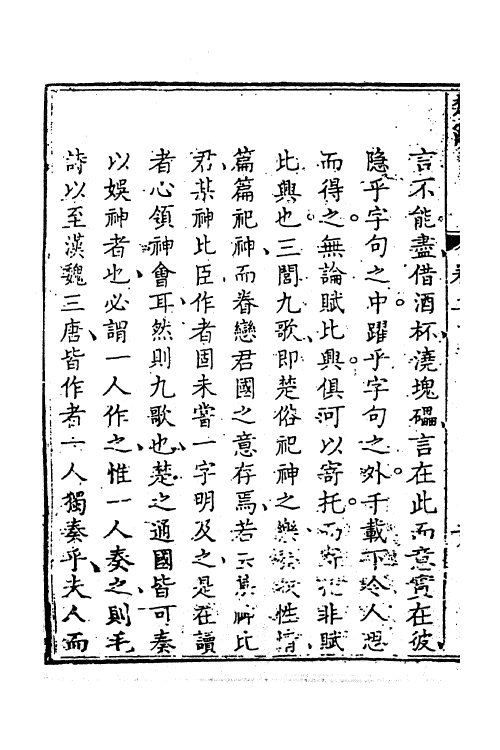 言不能盡借酒杯澆塊礧言在此而意實在彼
隐乎字句之中躍乎字句之外千載下令人思
而得之無論賦比興俱可以寄托而非賦
比興也三閭九歌即楚俗祀神之樂性情
篇篇祀神而眷戀君國之意存焉若云某神比
君某神比臣作者固未嘗一字明及之是在讀
者心領神會耳然則九歌也楚之通國皆可奏
以娛神者也必謂一人作之惟一人奏之則毛
詩以至漢魏三唐皆作者一人獨奏乎夫人而